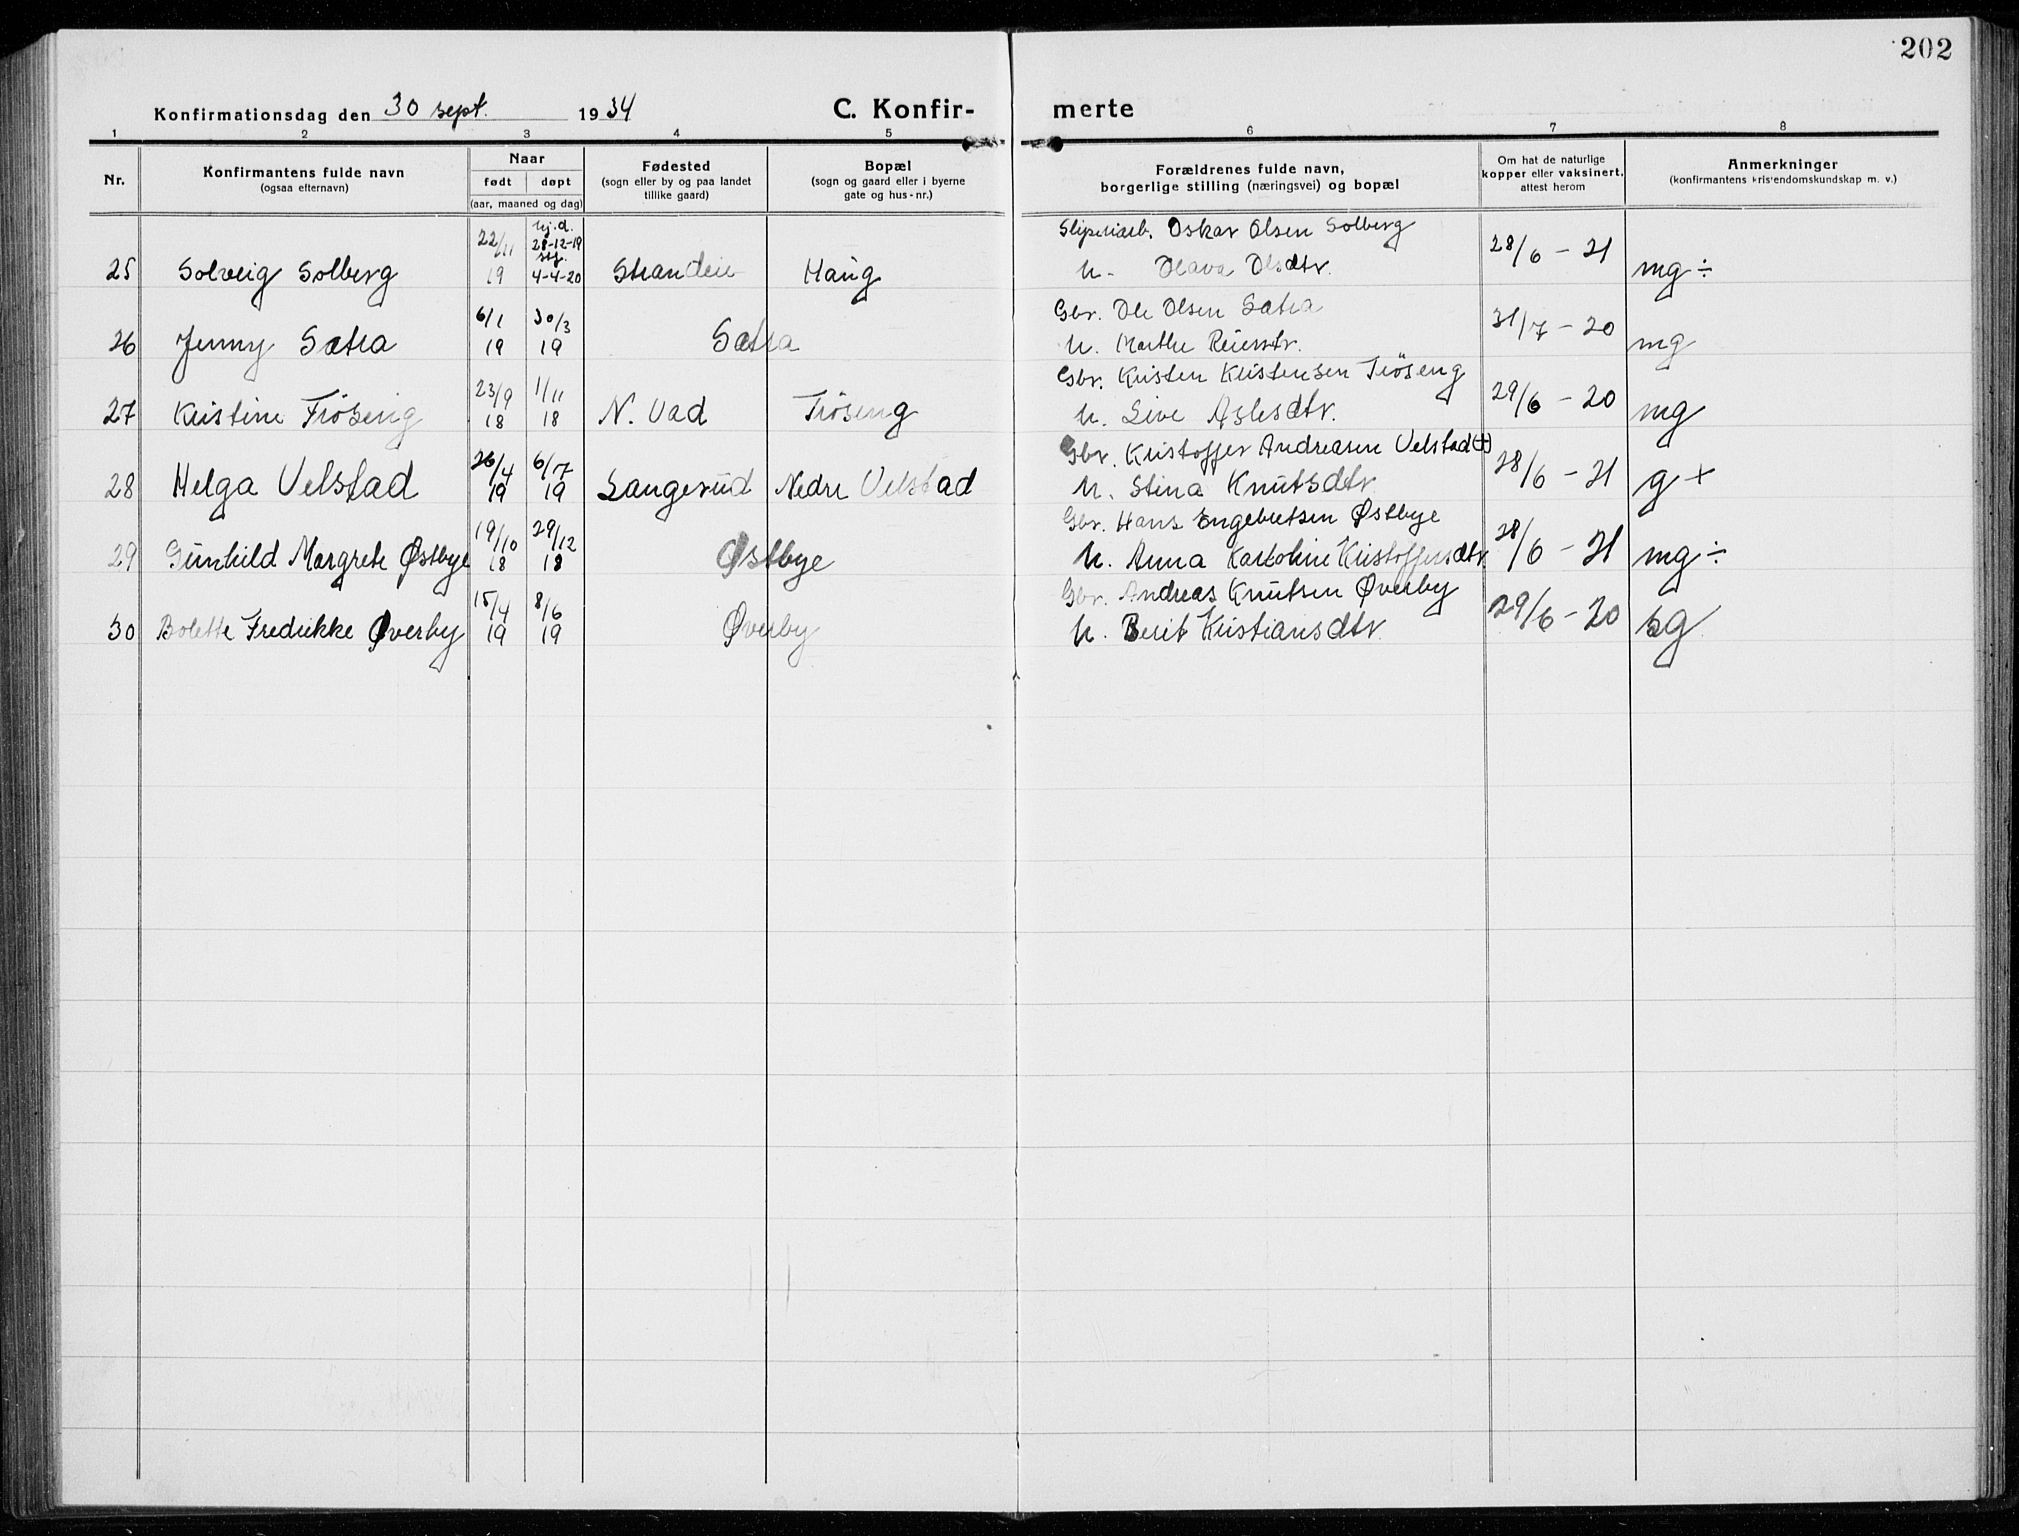 202
Konfirmationsdag den 30 sept. 1934 C. Konfirmerte
1 2 3 4 5 6 7 8
Nr.
Konfirmantens fulde navn
(ogsaa efternavn)
Naar
født døpt
(aar, maaned og dag)
Fødested
(sogn eller by og paa landet
tillike gaard)
Bopæl
(sogn og gaard eller i byerne
gate og hus-nr.)
Forældrenes fulde navn,
borgerlige stilling (næringsvei) og bopæl
Om hat de naturlige
kopper eller vaksinert,
attest herom
Anmerkninger
(konfirmantens kristendomskundskap m. v.)
25 Solveig Solberg 22/11 19 hj.d. 28-12-19 stf. 4-4-20 Haug Oskar Olsen Solberg
u. Olava Olsdtr. 28/6 - 21 mg ÷
26 Jenny Sætra 6/1 19 30/3 19 Sætra Gbr. Ole Olsen Sætra
u. Marthe Reiersdtr. 31/7 - 20 mg
27 Kristine Trøseng 23/9 18 1/11 18 N. Vad Trøseng Gbr. Kristen Kristensen Trøseng
u. Live Aslesdtr. 29/6 - 20 mg
28 Helga Velstad 26/4 19 6/7 19 Langerud Nedre Velstad Gbr. Kristoffer Andreasen Velstad (+)
u. Stina Knutsdtr 28/6 - 21 g +
29 Gunhild Margrete Østbye 19/10 18 29/12 18 Østbye Gbr. Hans Engebretsen Østbye
u. Anna Karoline Kristoffersdtr. 28/6 - 21 mg ÷
30 Bolette Fredrikke Øverby 15/4 19 8/6 19 Øverby Gbr. Andreas Knutsen Øverby
u. Berit Kristiansdtr. 29/6 - 20 sg